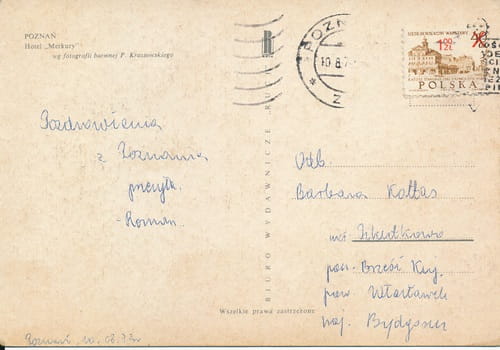 POZNAŃ
Hotel „Merkury"
wg fotografii barwnej P. Kraszewskiego
Pozdrowienia
z Poznania
przesyła
- Roman
BIURO WYDAWNICZE „RU
Wszelkie prawa zastrzeżone
Poznań, 10.08.72r.
POZN
10.8.7
1.00 ZŁ
POLSKA
Odb.
Barbara
wieś
pocz. Brześć Kuj.
pow. Włocławek
woj. Bydgoszcz